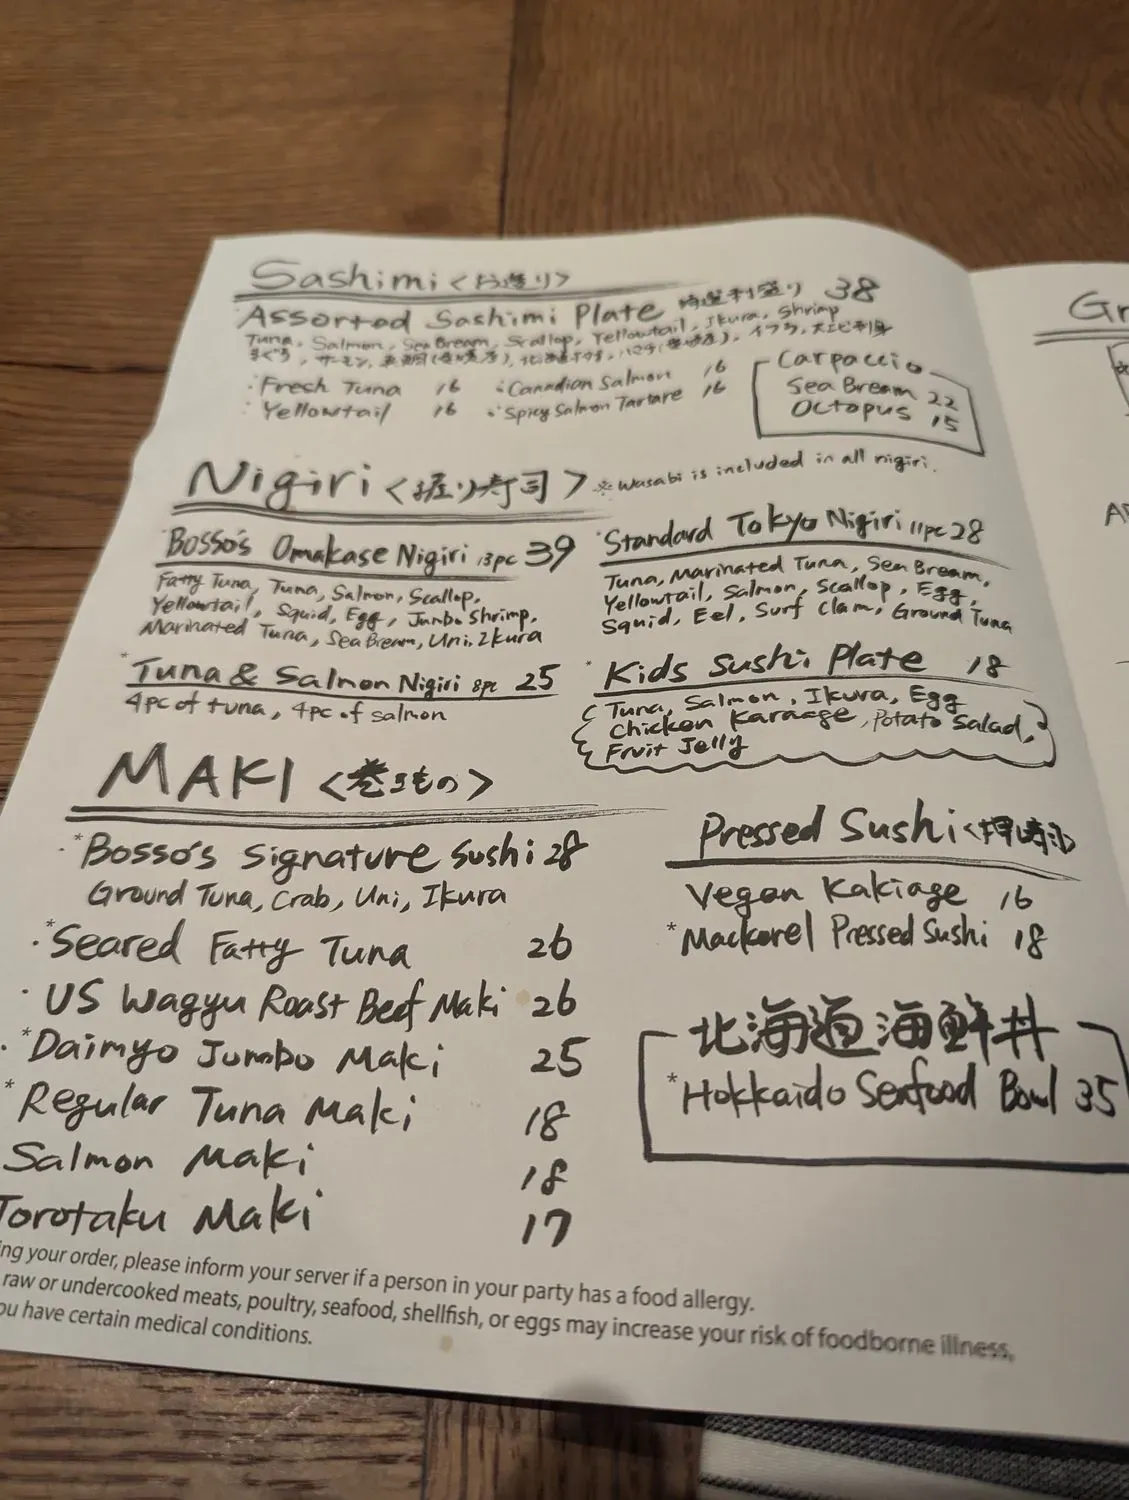 Sashimi <お造り>
Assorted Sashimi Plate 特選刺盛り 38
Tuna, Salmon, Sea Bream, Scallop, Yellowtail, Ikura, Shrimp
まぐろ, サーモン, 北海道ホタテ, イクラ,
・Fresh Tuna 16
・Canadian Salmon 16
・Yellowtail 16
・Spicy Salmon Tartare 16
Carpaccio
Sea Bream 22
Octopus 15
Nigiri <握り寿司> ※Wasabi is included in all nigiri.
*Bosso's Omakase Nigiri 13pc 39
Fatty Tuna, Tuna, Salmon, Scallop,
Yellowtail, Squid, Egg, Jumbo Shrimp,
Marinated Tuna, Sea Bream, Uni, Ikura
*Standard Tokyo Nigiri 11pc 28
Tuna, Marinated Tuna, Sea Bream,
Yellowtail, Salmon, Scallop, Egg,
Squid, Eel, Surf Clam, Ground Tuna
*Tuna & Salmon Nigiri 8pc 25
4pc of tuna, 4pc of salmon
*Kids Sushi Plate 18
Tuna, Salmon, Ikura, Egg
Chicken Karaage, Potato Salad,
Fruit Jelly
MAKI <巻きもの>
・*Bosso's Signature Sushi 28
Ground Tuna, Crab, Uni, Ikura
・*Seared Fatty Tuna 26
・US Wagyu Roast Beef Maki 26
・*Daimyo Jumbo Maki 25
*Regular Tuna Maki 18
Salmon Maki 18
Torotaku Maki 17
Pressed Sushi
Vegan Kakiage 16
*Mackerel Pressed Sushi 18
北海道海鮮丼
*Hokkaido Seafood Bowl 35
ing your order, please inform your server if a person in your party has a food allergy.
raw or undercooked meats, poultry, seafood, shellfish, or eggs may increase your risk of foodborne illness,
ou have certain medical conditions.
Gr